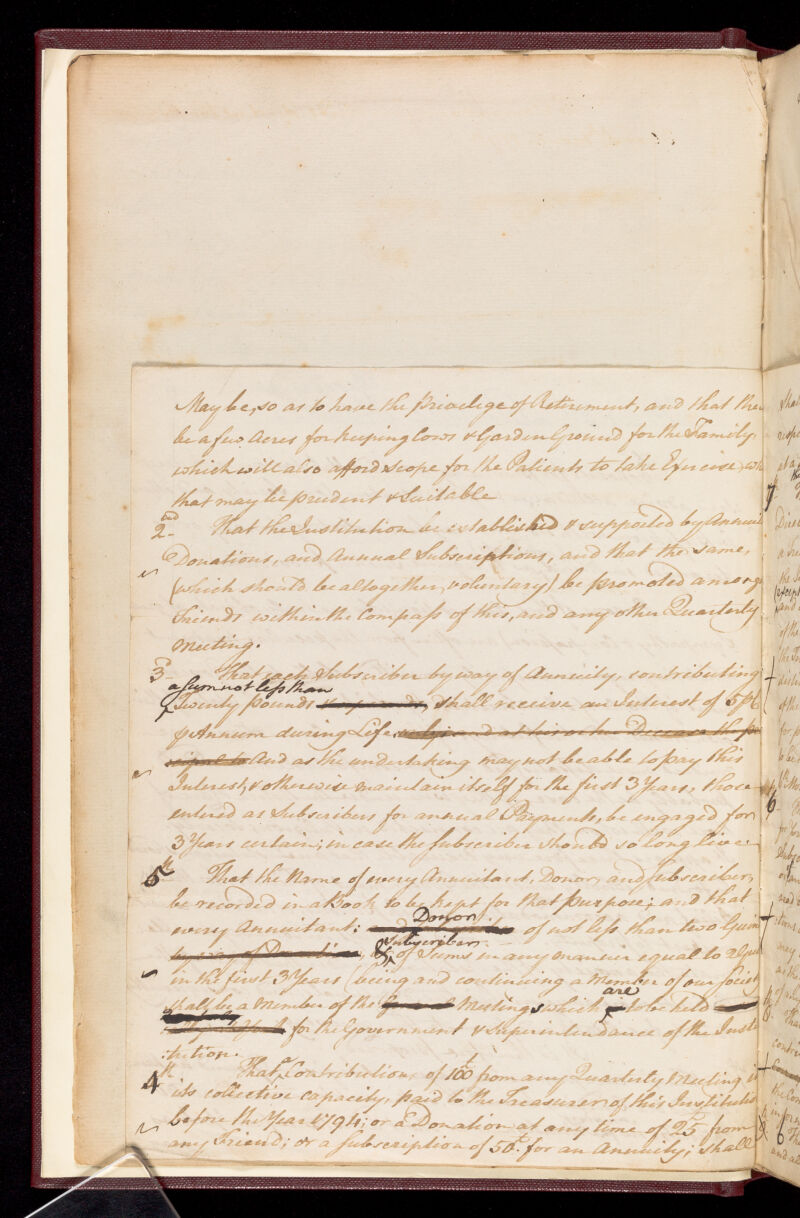 May be, so as to have the Privilege of Retirement, and that there
be a few Acres for keeping Cows & Garden Ground for the Family
which will also afford scope for the Patients to take Exercise, wh
that may be prudent & Suitable
2nd That the Institution be established & supported by Annuities
Donations, and Annual Subscriptions, and that the same,
(which should be altogether voluntary) be promoted among
Friends within the Compass of this, and any other Quarterly
Meeting.
3d That each Subscriber by way of Annuity, contributing
a sum not less than
Twenty pounds shall receive an Interest of 5 P Ct
P Annum during Life. and at his or her Decease the
And as the undertaking may not be able to pay this
Interest, & otherwise maintain itself for the first 3 Years, those
entered as Subscribers for annual Payments, be engaged for
3 Years certain; in case the Subscriber should so long live.
5th That the Name of every Annuitant, Donor, and Subscriber,
be recorded in a Book to be kept for that purpose; and that
Donor
every Annuitant: of not less than two Guin
Subscriber
by way of Donation, & of Sums in any manner equal to
in the first 3 Years (being and continuing a Member of our Society
are
shall be a Member of the Meetings which to be held
for the Government & Superintendance of the Insti
:tution.
4th That Contributions of £100 from any Quarterly Meeting in
its collective capacity, paid to the Treasurer of this Institution
before the Year 1794; or a Donation at any time of £25 from
any Friend; or a subscription of 50£ for an Annuity; shall